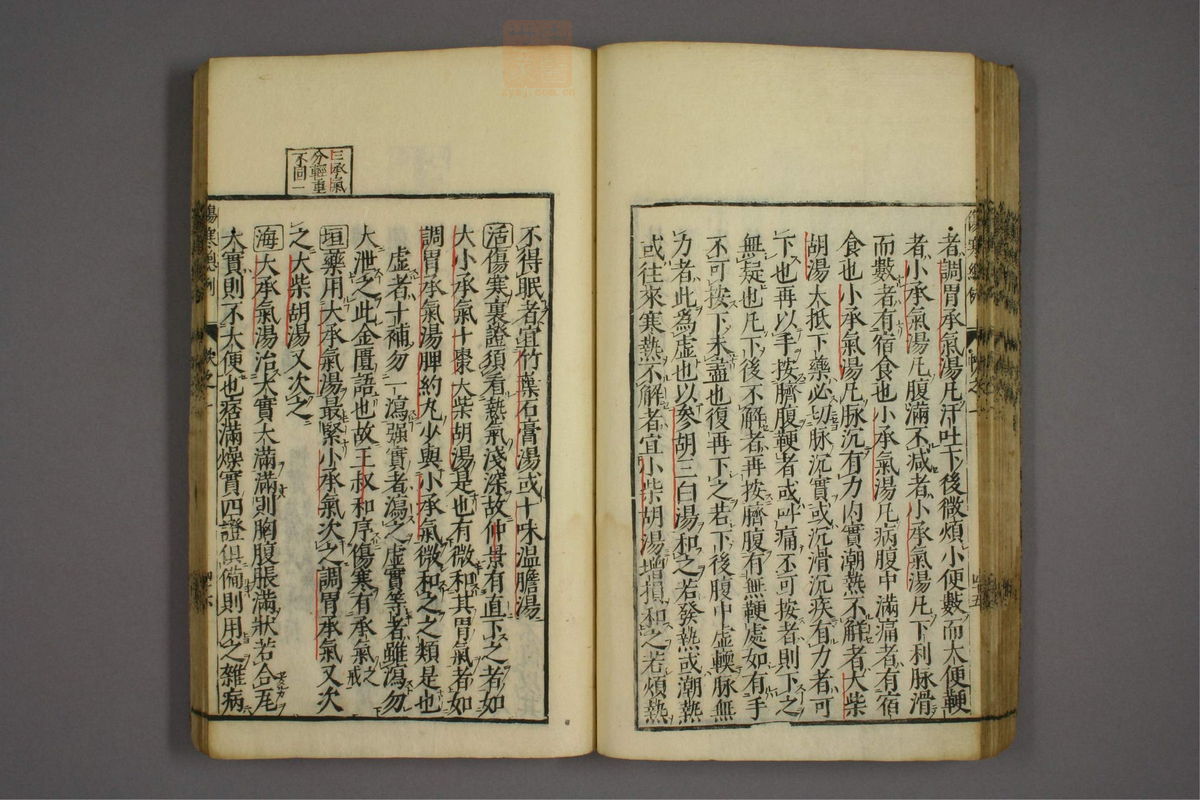 者調胃承氣湯凡汗吐下後微煩小便數而大便鞕
者小承氣湯凡腹滿不減者小承氣湯凡下利脉滑
而數者有宿食也小承氣湯凡病腹中滿痛者有宿
食也小承氣湯凡脉沉有力内實潮熱不解者大柴
胡湯大抵下藥必切脉沉實或沉滑沉疾有力者可
下也再以手按臍腹鞕者或呌痛不可按者則下之
無疑也凡下後不解者再按臍腹有無鞕處如有手
不可按下未盡也復再下之若下後腹中虛輭脉無
力者此為虛也以參胡三白湯和之若發熱或潮熱
或往來寒熱不解者宜小柴胡湯增損和之若煩熱
傷寒總例
四五
三承氣
分輕重
不同一
不得眠者宜竹葉石膏湯或十味温膽湯
活傷寒裏證須看熱氣淺深故仲景有直下之者如
大小承氣十棗大柴胡湯是也有微和其胃氣者如
調胃承氣湯脾約丸少與小承氣微和之之類是也
虛者十補勿一瀉强實者瀉之虛實等者雖瀉勿
大泄之此金匱語也故王叔和序傷寒有承氣之戒
垣藥用大承氣湯最緊小承氣次之調胃承氣又次
之大柴胡湯又次之
海大承氣湯治大實大滿滿則胸腹脹滿狀若合瓦
大實則不大便也痞滿燥實四證俱備則用之雜病
傷寒總例
四六